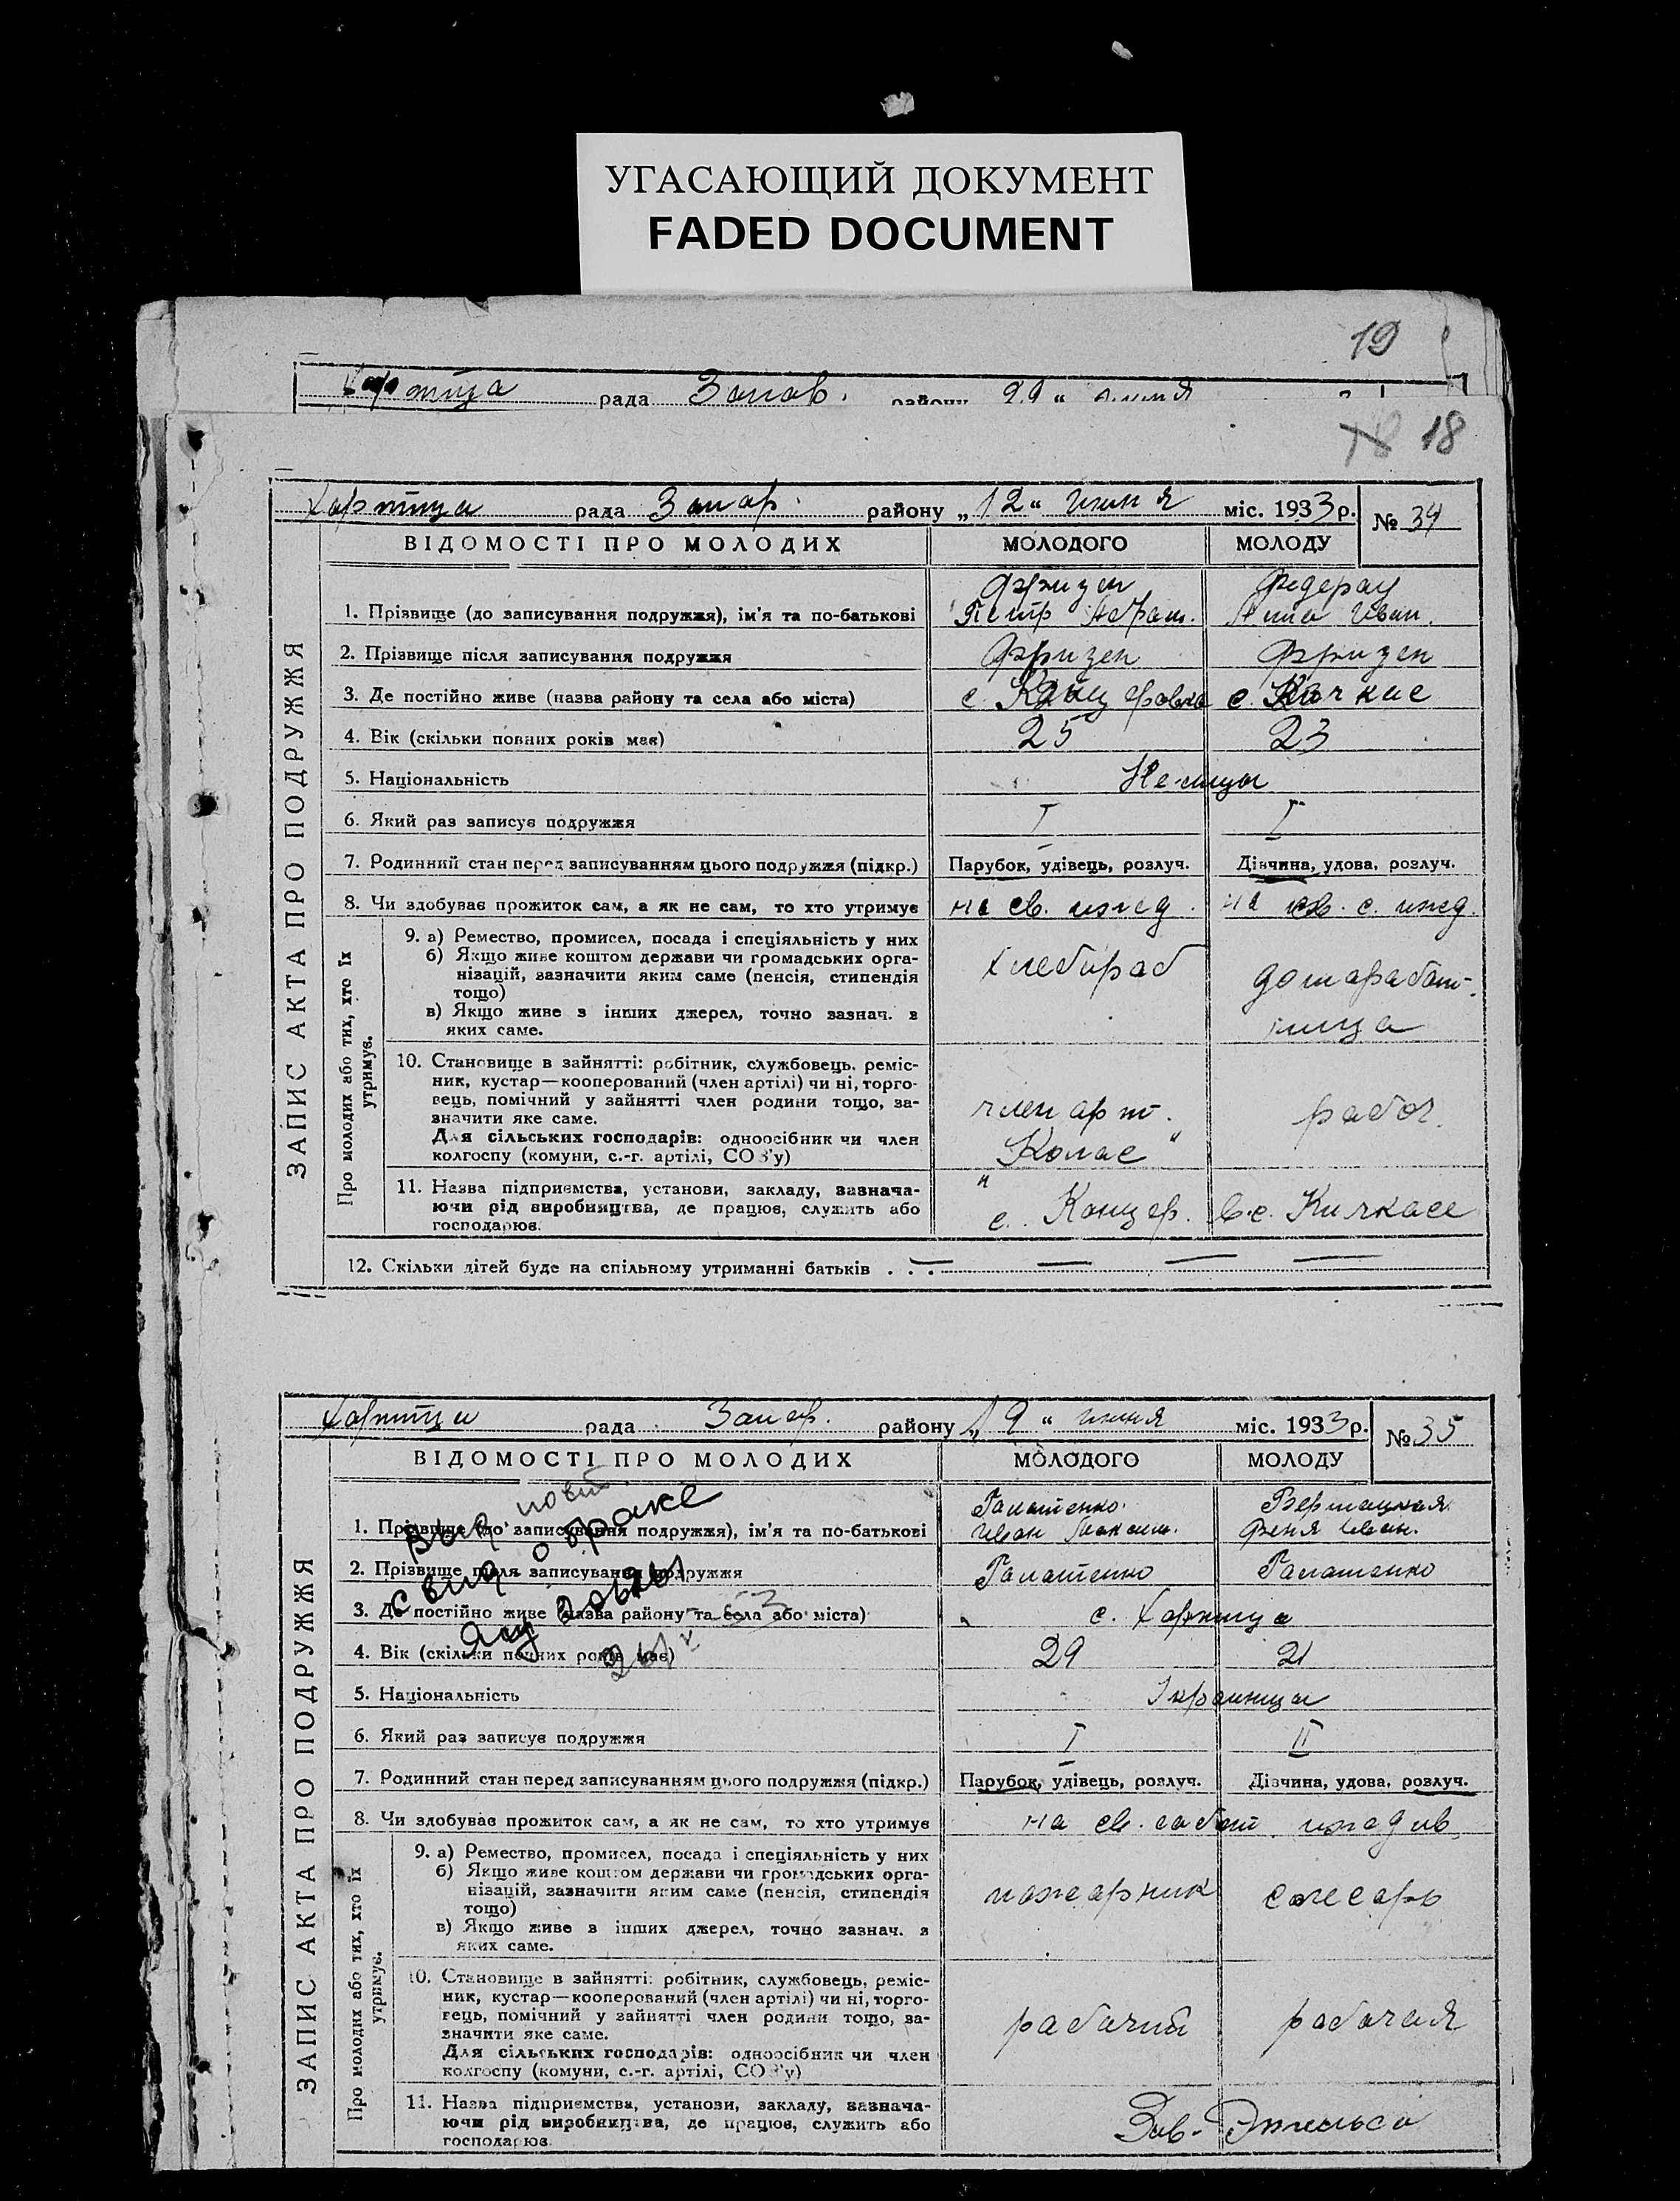 УГАСАЮЩИЙ ДОКУМЕНТ
FADED DOCUMENT
19
рада району
18 18
Хортица рада Запор. району „12“ июня міс. 1933 р. № 34
ВІДОМОСТІ ПРО МОЛОДИХ МОЛОДОГО МОЛОДУ
ЗАПИС АКТА ПРО ПОДРУЖЖЯ
Фризен Федерау
1. Прізвище (до записування подружжя), ім'я та по-батькові Петр Абрам. Анна Иван.
2. Прізвище після записування подружжя Фризен Фризен
3. Де постійно живе (назва району та села або міста) с. Канцеровка с. Кичкас
4. Вік (скільки повних років має) 25 23
5. Національність Немцы
6. Який раз записує подружжя I I
7. Родинний стан перед записуванням цього подружжя (підкр.) Парубок, удівець, розлуч. Дівчина, удова, розлуч.
8. Чи здобуває прожиток сам, а як не сам, то хто утримує на св. ижд. на св. с. ижд.
Про молодих або тих, хто їх утримує.
9. а) Ремество, промисел, посада і спеціяльність у них
б) Якщо живе коштом держави чи громадських орга-
нізацій, зазначити яким саме (пенсія, стипендія
тощо)
в) Якщо живе з інших джерел, точно зазнач. з
яких саме.
хлебораб
домработ-
ница
10. Становище в зайнятті: робітник, службовець, реміс-
ник, кустар—кооперований (член артілі) чи ні, торго-
вець, помічний у зайнятті член родини тощо, за-
значити яке саме.
Для сільських господарів: одноосібник чи член
колгоспу (комуни, с.-г. артілі, СОЗ'у)
член арт.
„Колас“
рабоч.
11. Назва підприємства, установи, закладу, зазнача-
ючи рід виробництва, де працює, служить або
господарює.
с. Канцер. в с. Кичкасе
12. Скільки дітей буде на спільному утриманні батьків . . . — — — —
Хортица рада Запор. району „19“ июня міс. 1933 р. № 35
ВІДОМОСТІ ПРО МОЛОДИХ МОЛОДОГО МОЛОДУ
ЗАПИС АКТА ПРО ПОДРУЖЖЯ
о браке
1. Прізвище (до записування подружжя), ім'я та по-батькові Иван Максим. Феня Иван.
2. Прізвище після записування подружжя
3. Де постійно живе (назва району та села або міста) с. Хортица
4. Вік (скільки повних років має) 29 21
5. Національність Украинцы
6. Який раз записує подружжя I II
7. Родинний стан перед записуванням цього подружжя (підкр.) Парубок, удівець, розлуч. Дівчина, удова, розлуч.
8. Чи здобуває прожиток сам, а як не сам, то хто утримує на св. собст. иждив.
Про молодих або тих, хто їх утримує.
9. а) Ремество, промисел, посада і спеціяльність у них
б) Якщо живе коштом держави чи громадських орга-
нізацій, зазначити яким саме (пенсія, стипендія
тощо)
в) Якщо живе з інших джерел, точно зазнач. з
яких саме.
пожарник слесарь
10. Становище в зайнятті: робітник, службовець, реміс-
ник, кустар—кооперований (член артілі) чи ні, торго-
вець, помічний у зайнятті член родини тощо, за-
значити яке саме.
Для сільських господарів: одноосібник чи член
колгоспу (комуни, с.-г. артілі, СОЗ'у)
рабочий рабочая
11. Назва підприємства, установи, закладу, зазнача-
ючи рід виробництва, де працює, служить або
господарює.
Зав. Энгельса